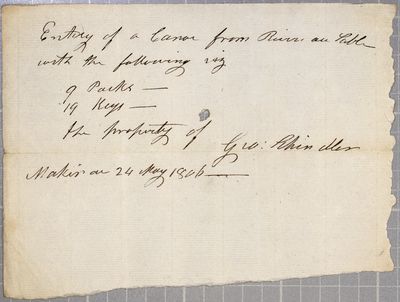 Entry of a Canoe from River au Sable
with the following viz
9 Packs —
19 Kegs —
the property of
Geo: Shindler
Makinac 24 May 1806 —